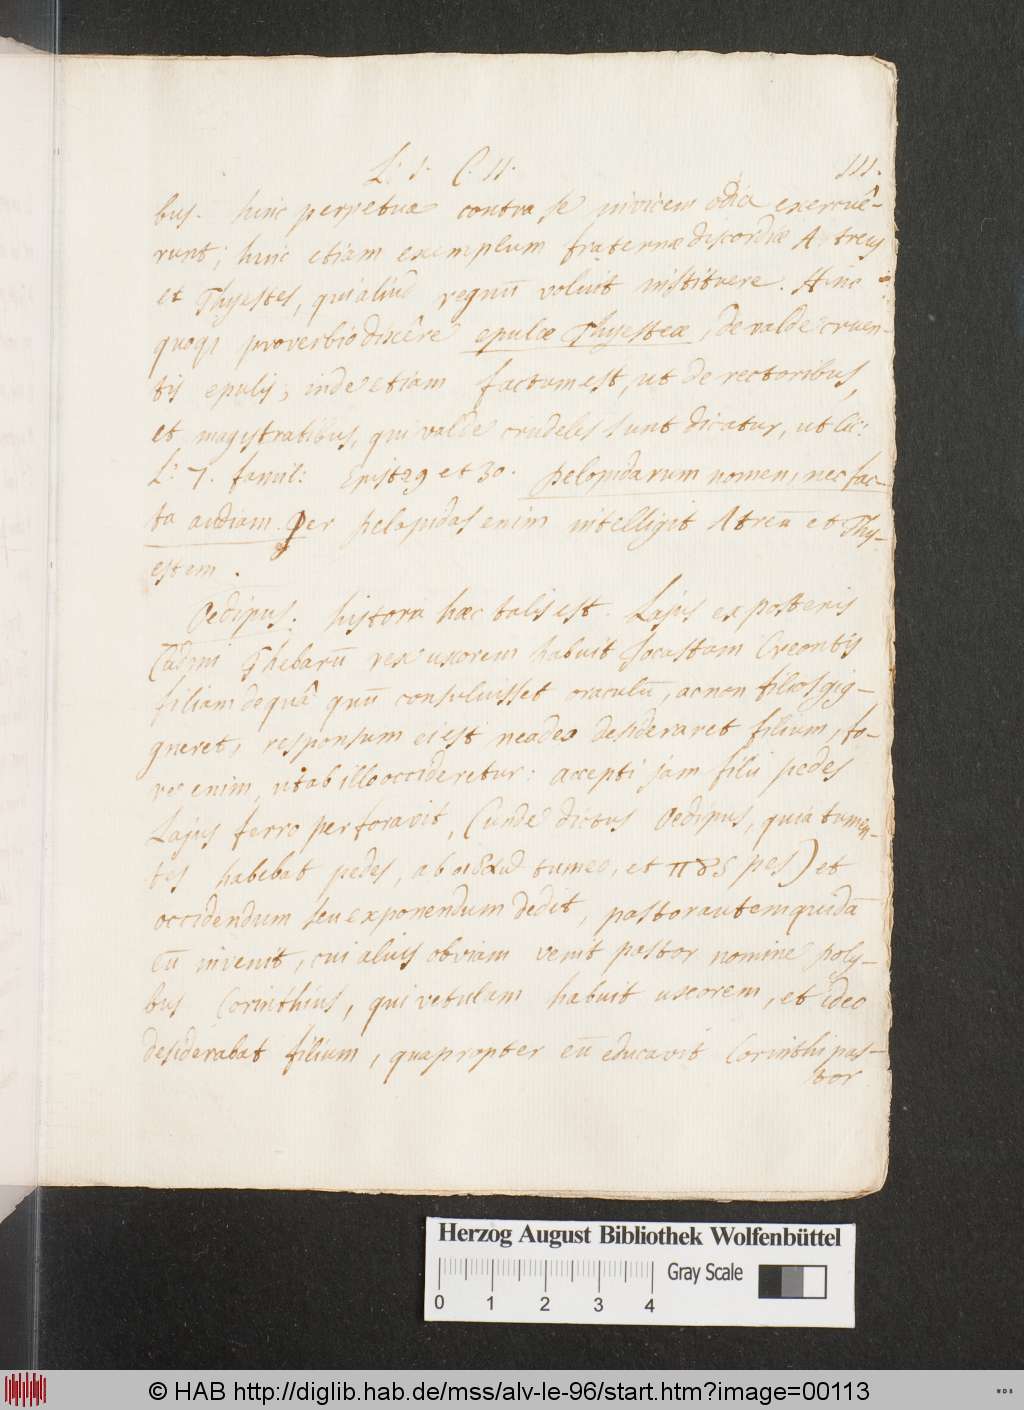 L. 1. C. 11. 111.
bus. hinc perpetuæ contra se invicem odia exercuê-
runt; hinc etiam exemplum fraternæ discordiæ Atreus
et Thyestes, qui aliud regnū voluit instituere. Hinc
quoqȝ proverbio dicêre epulæ Thyesteæ, de valde cruen-
tis epulis; inde etiam factum est, ut de rectoribus,
et magistratibus, qui valde crudeles sunt dicatur, ut Cic:
L: 7. famil: Epist 29 et 30. pelopidarum nomen, nec fac-
ta audiam. Per pelopidas enim intelligit Atreū et Thy-
estem.
Oedipus: historia hæc talis est. Lajus ex posteris
Cadmi Thebarū rex uxorem habuit Jocastam Creontis
filiam de quâ quū consuluisset oraculū, ac non filios gig-
gneret, responsum ei est ne adeo desideraret filium, fo-
re enim, ut ab illo occideretur: accepti jam filii pedes
Lajus ferro perforavit, (unde dictus Oedipus, quia tumen-
tes habebat pedes, ab tumeo, et πȣς pes) et
occidendum seu exponendum dedit, pastor autem quidā
eū invenit, cui alius obviam venit pastor nomine poly-
bus Corinthius, qui vetulam habuit uxorem, et ideo
desiderabat filium, quapropter eū educavit Corinthi pas-
tor
Herzog August Bibliothek Wolfenbüttel
Gray Scale
0 1 2 3 4
© HAB http://diglib.hab.de/mss/alv-le-96/start.htm?image=00113